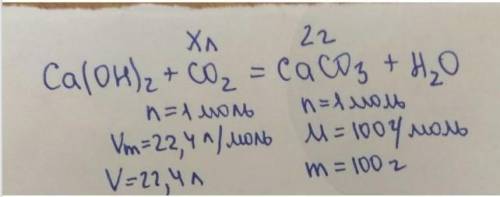 Xл 2г
Ca(OH)₂ + CO₂ = CaCO₃ + H₂O
n=1моль n=1моль
Vm=22,4л/моль M=100г/моль
V=22,4л m=100г